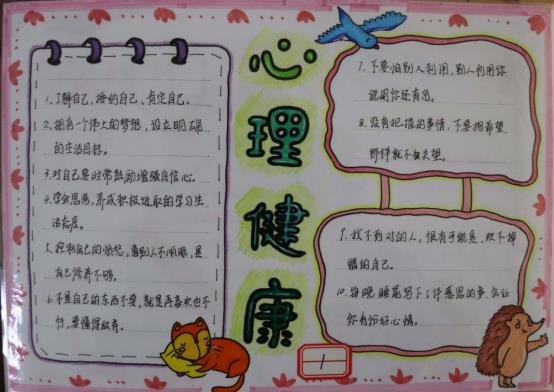 心理健康
1、了解自己,接纳自己、肯定自己。
2、拥有一个伟大的梦想,设立明确
的生活目标。
3、对自己要时常鼓励增强自信心。
4、学会思考,养成积极进取的学习生
活态度。
5、控制自己的愤怒,看别人不顺眼,是
自己修养不够。
6、不是自己的东西不要,就是再喜欢也不
行,要懂得放弃。
7、不要怕别人利用,别人利用你
说明你还有用。
8、没有把握的事情,不要抱希望,
那样就不会失望。
9、找不到对的人,很有可能是,改不掉
错的自己。
10、每晚睡前写下1件感恩的事,会让
你有份好心情。
1